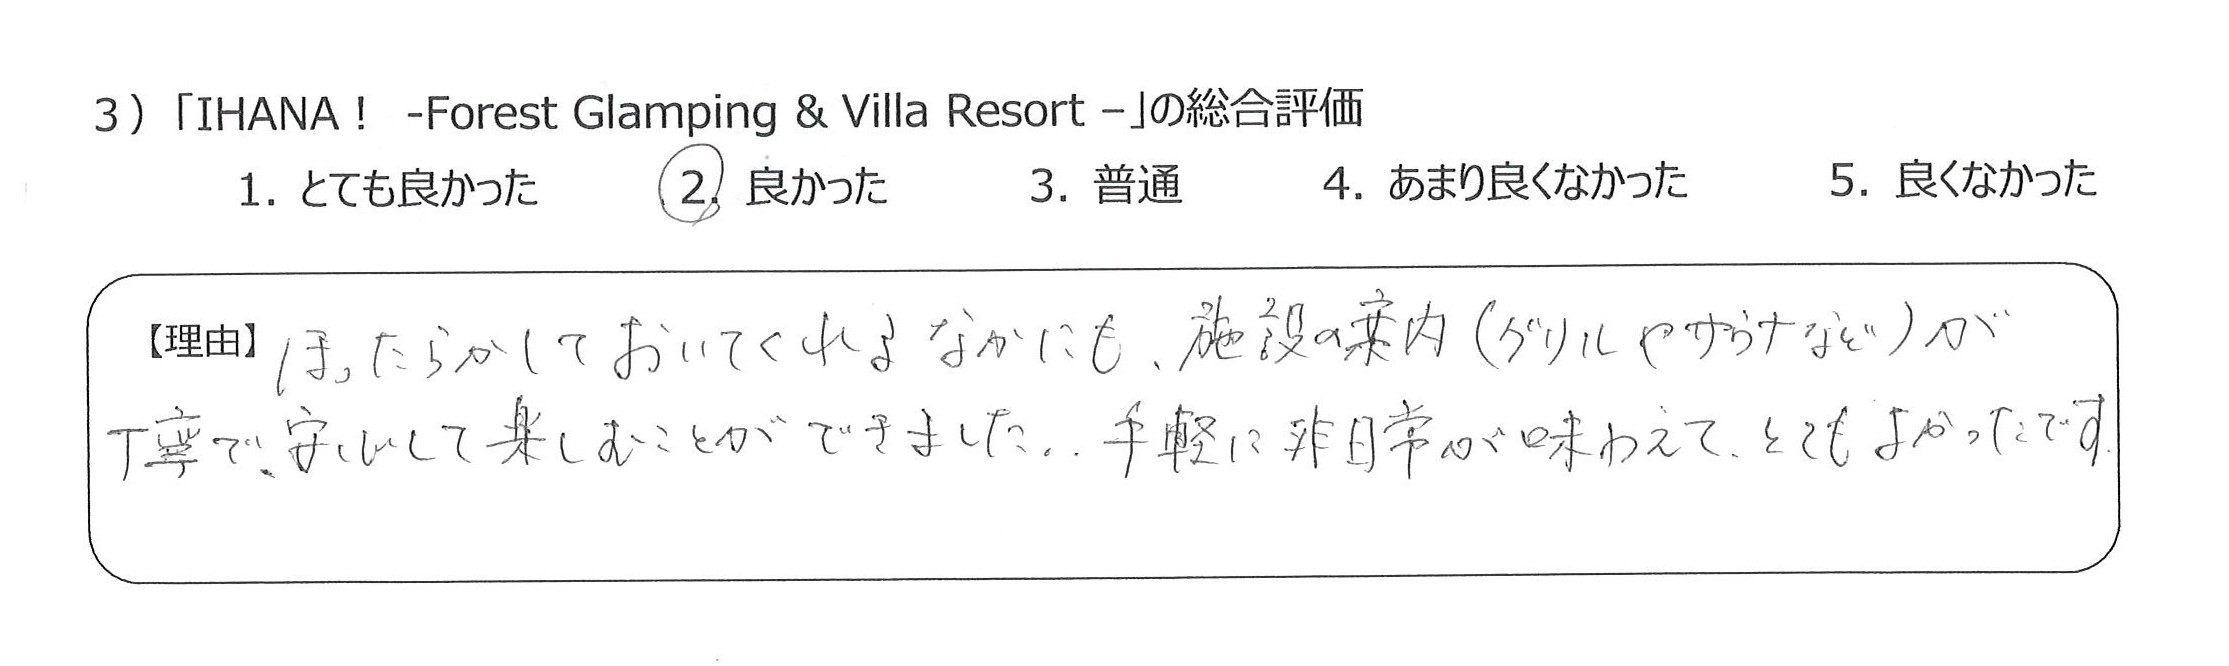 3）「IHANA！ -Forest Glamping & Villa Resort –」の総合評価
1. とても良かった 2. 良かった 3. 普通 4. あまり良くなかった 5. 良くなかった
【理由】ほったらかしておいてくれるなかにも、施設の案内（グリルやサウナなど）が
丁寧で、安心して楽しむことができました。手軽に非日常が味わえて、とてもよかったです。